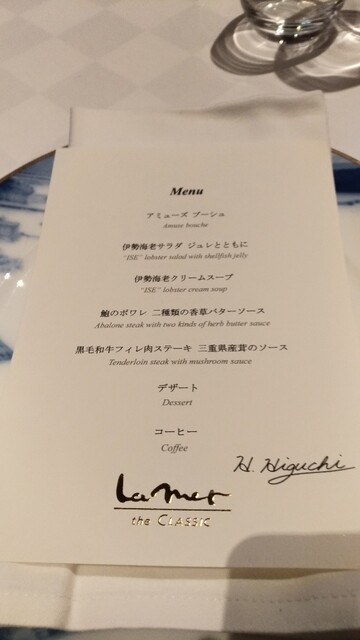 Menu
アミューズ ブーシュ
Amuse bouche
伊勢海老サラダ ジュレとともに
"ISE" lobster salad with shellfish jelly
伊勢海老クリームスープ
"ISE" lobster cream soup
鮑のポワレ 二種類の香草バターソース
Abalone steak with two kinds of herb butter sauce
黒毛和牛フィレ肉ステーキ 三重県産茸のソース
Tenderloin steak with mushroom sauce
デザート
Dessert
コーヒー
Coffee
H. Higuchi
La mer
the CLASSIC